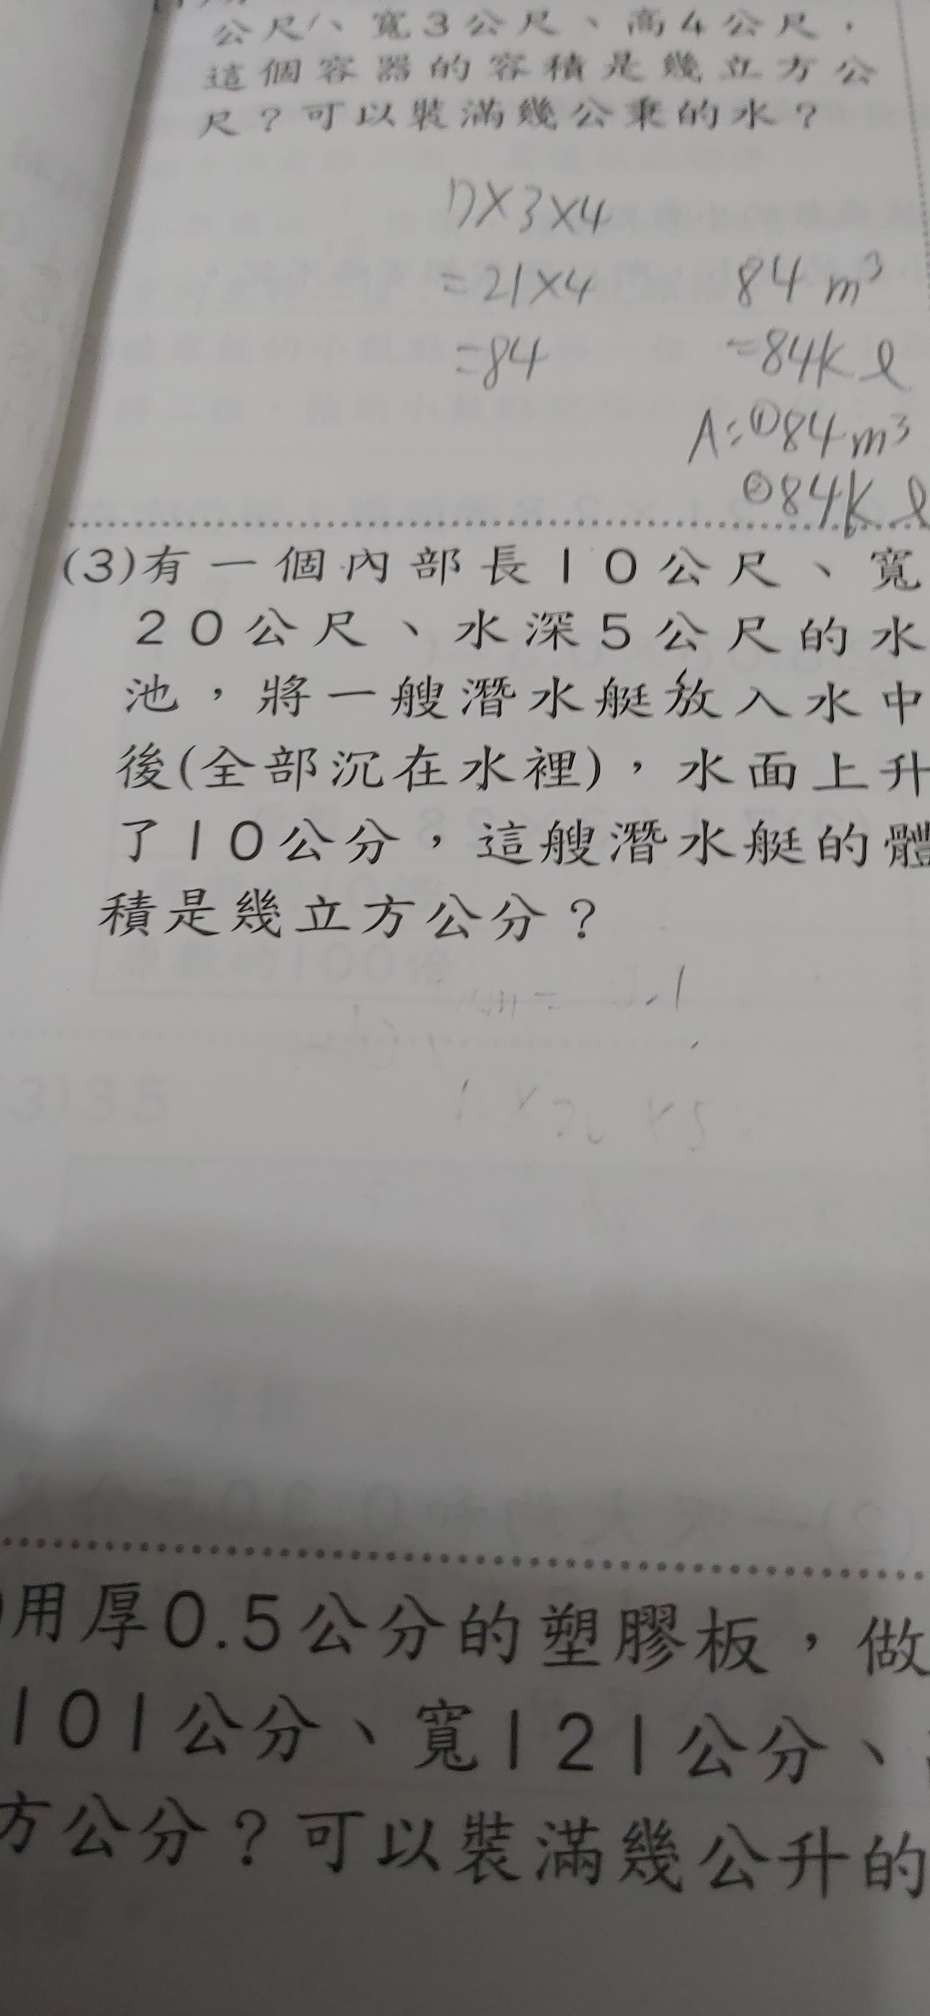 公尺、寬3公尺、高4公尺，
這個容器的容積是幾立方公
尺？可以裝滿幾公秉的水？
7×3×4
=21×4
=84
84 m³
=84kℓ
A:①84m³
②84kℓ
(3)有一個內部長10公尺、寬
20公尺、水深5公尺的水
池，將一艘潛水艇放入水中
後(全部沉在水裡)，水面上升
了10公分，這艘潛水艇的體
積是幾立方公分？
用厚0.5公分的塑膠板，做
101公分、寬121公分、
方公分？可以裝滿幾公升的